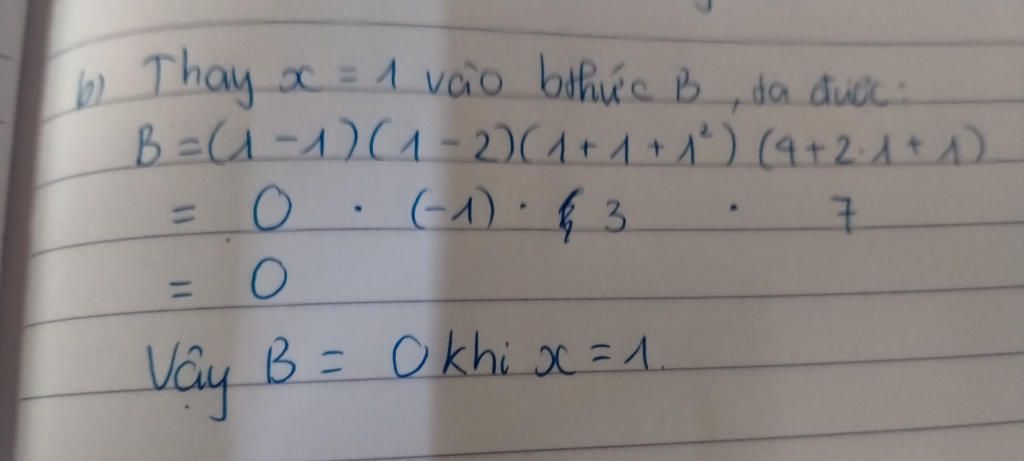 b) Thay x = 1 vào bthức B, ta được:
B = (1 - 1)(1 - 2)(1 + 1 + 1²)(4 + 2.1 + 1)
= 0 . (-1) . 3 . 7
= 0
Vậy B = 0 khi x = 1.